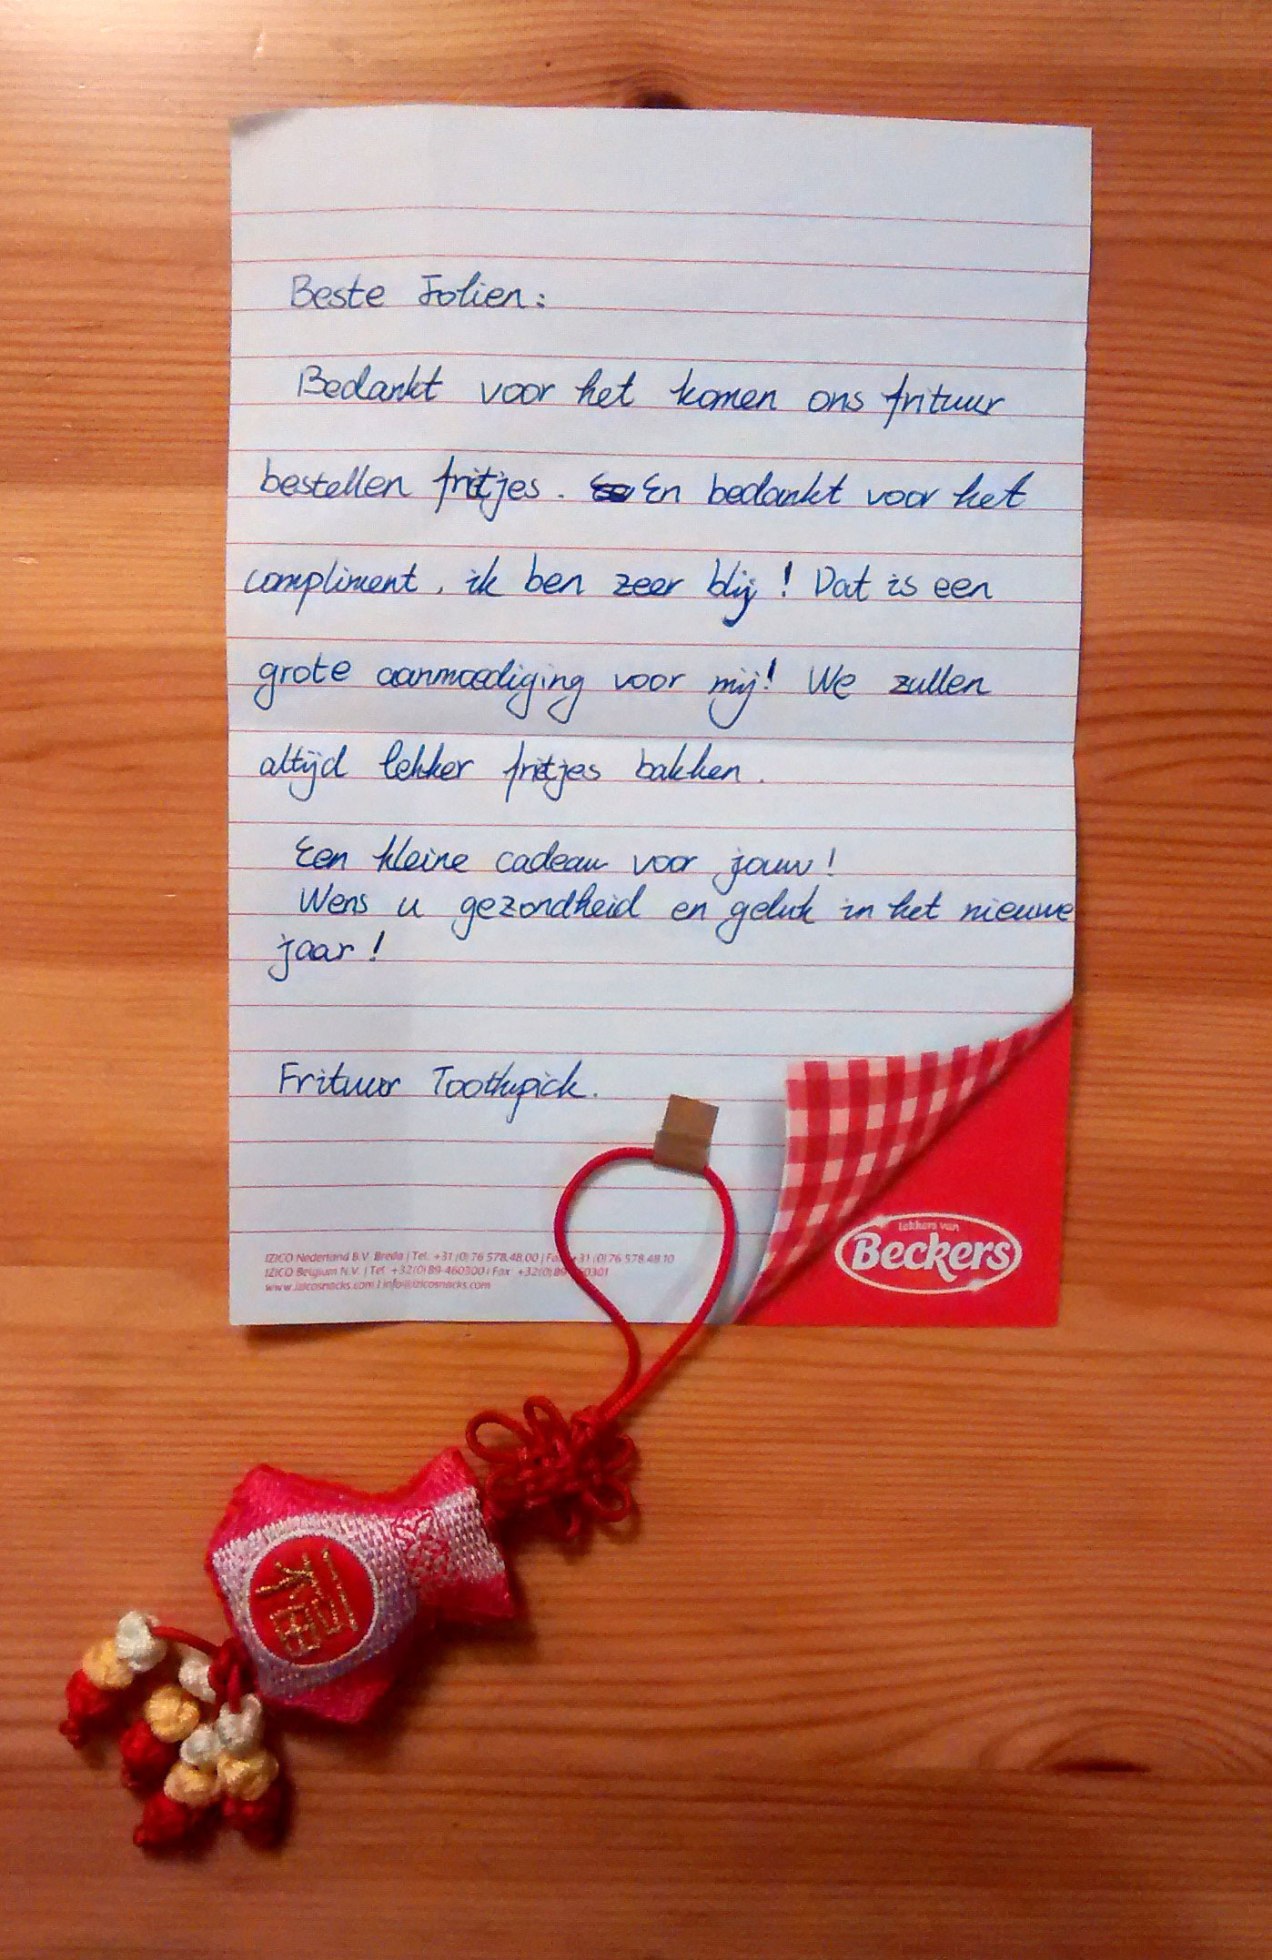 Beste Jolien:
Bedankt voor het komen ons frituur
bestellen fritjes. En bedankt voor het
compliment, ik ben zeer blij! Dat is een
grote aanmoediging voor mij! We zullen
altijd lekker fritjes bakken.
Een kleine cadeau voor jouw!
Wens u gezondheid en geluk in het nieuwe
jaar!
Frituur Toothpick.
lekkers van
Beckers
IZICO Nederland B.V. Breda | Tel. +31 (0) 76 578.48.00 | Fax +31 (0) 76 578 48 10
IZICO Belgium N.V. | Tel +32(0)89-460300 | Fax +32(0)89 460301
www.izicosnacks.com | info@izicosnacks.com
福